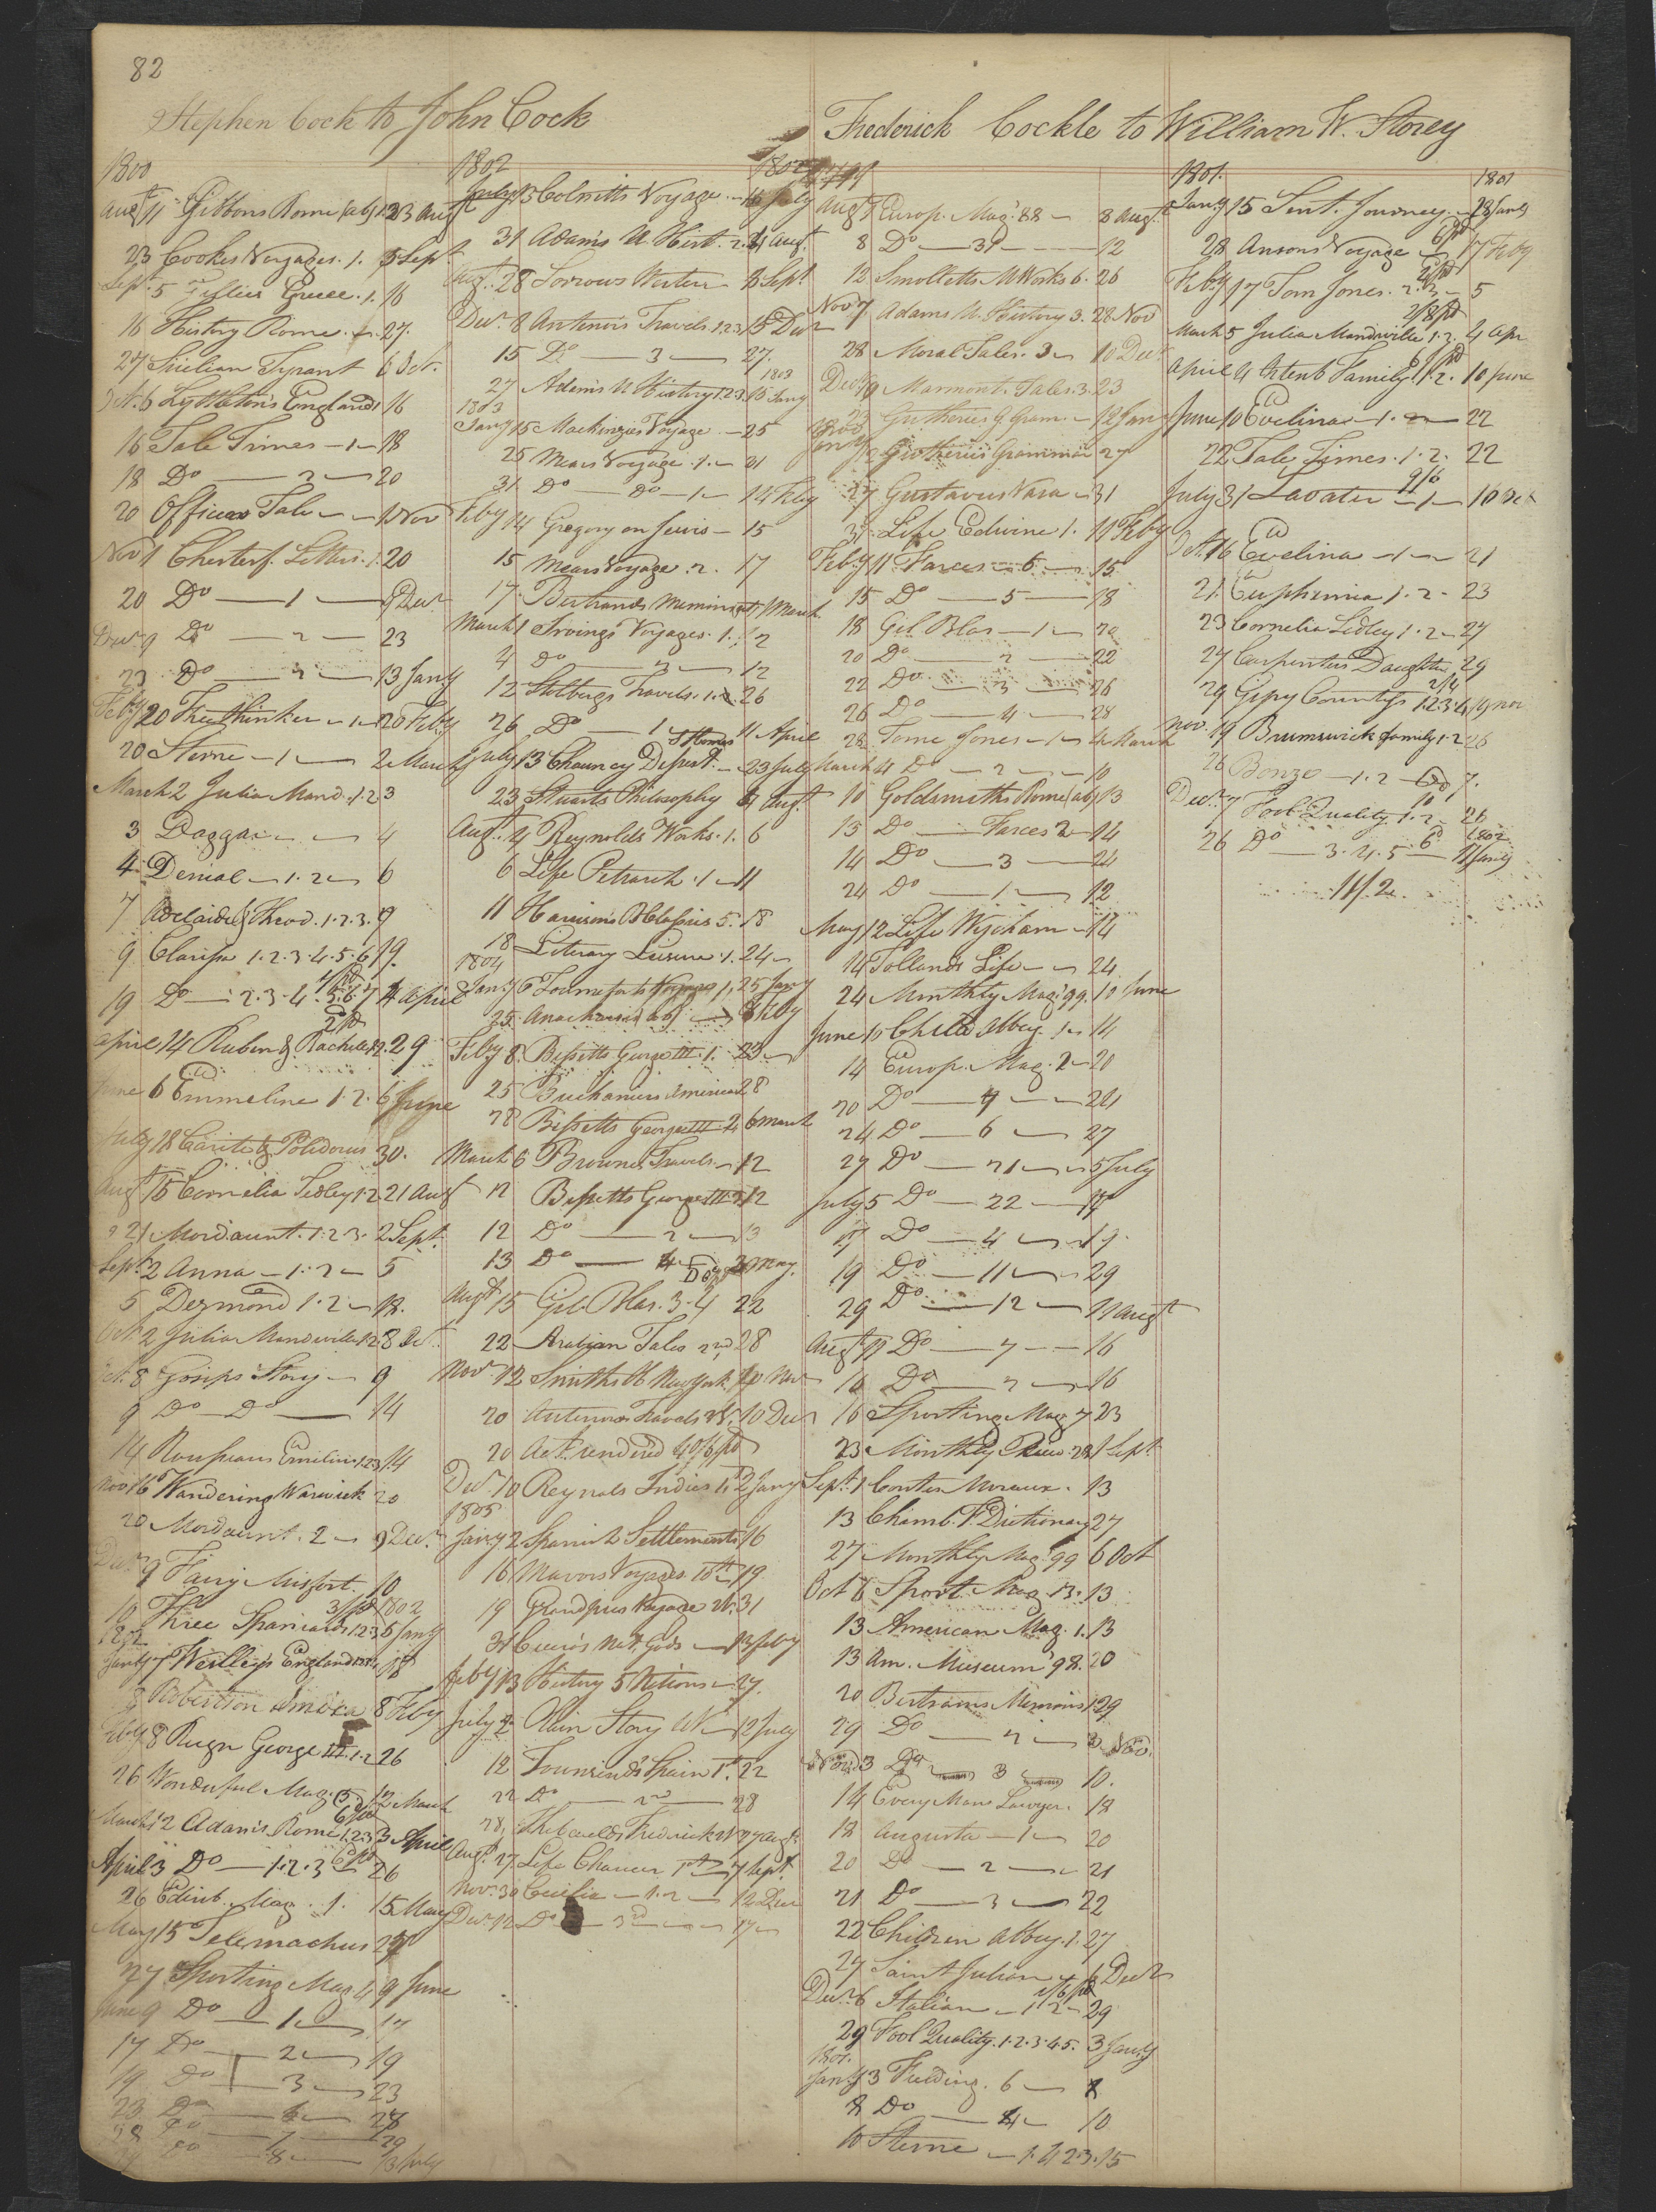 82
Stephen Cock to John Cock
1800
Augt 11 Gibbons Rome (ab) 1.2 23 Augt
23 Cookes Voyages. 1. 5 Sept
Sept. 5 Gillies Greece. 1. 16
16 History Rome. 27.
27 Sicilian Tyrant 6 Oct.
Oct. 6 Lyttletons England 1 16
16 Tale Times — 1 — 18
18 Do — 2 — 20
20 Officers Tale — 1 Nov
Nov 1 Chesterf. Letters. 1. 20
20 Do — 1 — 9 Decr
Decr 9 Do — 2 — 23
23 Do — 3 — 13 Jany
Feby 20 Freethinker — 1 — 20 Feby
20 Sterne — 1 — 2 March
March 2 Julia Mand. 1.2 3
3 Daggar — 4
4 Denial — 1.2 — 6
7 Adelaide & Theod. 1.2.3. 9
9 Clarissa 1.2.3.4.5.6 19.
19 Do — 2.3.4.5.6.7 14 April
April 14 Ruben & Rachel 1.2. 29
June 6 Emmeline 1.2. 6 June
July 18 Carite & Polidorus 30.
Augt 15 Cornelia Sedley 1.2 21 Augt
21 Mordaunt. 1.2.3. 2 Sept.
Sept. 2 Anna — 1.2 — 5
5 Dezmond 1.2 — 18.
Oct 2 Julia Mandeville 1.2 8 Oct.
Oct. 8 Gosips Story — 9
9 Do — Do — 14
14 Rousseaus Emilius 1.2.3 14
Nov 16 Wandering Warwick 20
20 Mordaunt. 2 — 9 Decr
Decr 9 Fairy Misfort. 10
3/ pd 1802
10 Three Spaniards 1.2.3 5 Jany
1802
Jany 7 England 18
18 Robertson America 8 Feby
Feby 8 Reign George III. 1.2 26
26 Wonderful Mag. 5. 12 March
March 12 Adams Rome 1.2.3 3 April
April 3 Do — 1.2.3 26
26 Edinb. Mag. 1. 15 May
May 15 Telemachus 27
27 Sporting Mag 4 9 June
June 9 Do — 1 — 17
17 Do — 2 — 19
19 Do — 3 — 23
23 Do — 28
28 Do — 29
29 Do — 8 — 13 July
1802 1802
July 13 Colnetts Voyage — 16 July
31 Adams U. Hist. 2. 21 Augt
Augt. 28 Sorrows Werter 3 Sept
Decr. 8 Antenors Travels 1.2.3 15 Decr
15 Do — 3 — 27.
1803
27 Adams U History 1.2.3. 15 Jany
1803
Jany 15 Mackinzies Voyage — 25
25 Mears Voyage. 1. — 31
31 Do — Do — 1 — 14 Feby
Feby 14 Gregory on Jewis — 15
15 Mears Voyage. 2. 17
17. Bertrands Memoirs 1 March
March 1 Irvings Voyages. 1. 2
4 Do — 2 — 12
12 Stolbergs Travels. 1.2. 26
26 Do — 1 — 11 April
July 13 Chauncy — 23 July
23 Stuarts Philosophy 4 Augt
Augt. 4 Reynolds Works. 1. 6
6 Life Petrarch. 1 — 11
11 5. 18
18 Literary Leisure. 1. 24
1804
Jany 6 Tourneforts Voyage 1, 25 Jany
25 Anacharsis (ab) 8 Feby
Feby 8 Bissetts George III. 1. 25
25 Buchaniers America 28
28 Bissetts George III 2 6 March
March 6 Browns Travels — 12
12 Bissetts George III 2 12
12 Do — 2 — 13
13 Do — 4 — May.
Augt 15 Gil Blas. 3.4 22
22 Arabian Tales 2nd 28
Novr 12 Smiths H New York. 20 Nov
20 Antenors Travels 10 Decr
20 Act. rendered 40/6 pd
Decr 10 Reynals Indies 1. 2 Jany
1805
Jany 2 Spanish Settlements 16
16 Mavors Voyages 18th 19
19 Grandpres Voyage 31
31 Ciceros Nat. Gods — 13 Feby
Feby 13 History 5 Nations — 27.
July 2 Plain Story — 12 July
12 Townsends Spain 1st. 22
22 Do — 2nd — 28
28, Thebaulds Frederick 27 Augt
Augt. 27 Life Chaucer 1st — 7 Sept.
Nov. 30 Cecilia — 1.2 — 12 Decr
Decr 12 Do — 3d — 17
Frederick Cockle to William W. Storey
Augt 1 Europ. Mag. 88 — 8 Augt
8 Do — 31 — 12
12 Smolletts M Works 6. 26
Nov 7 Adams U. History 3. 28 Nov
28 Moral Tales. 3 — 10 Decr
Decr 10 Marmont. Tales. 3. 23
23 Gutheries G. Gram. — 12 Jany
1800
Jany 12 Gutheries Grammar 27
27 Gustavus Vasa — 31
31. Life Edwine 1. 11 Feby
Feby 11 Farces — 6 — 15
15 Do — 5 — 18
18 Gil Blas — 1 — 20
20 Do — 2 — 22
22 Do — 3 — 26
26 Do — 4 — 28
28 Tome Jones — 1 — 4 March
March 4 Do — 2 — 10
10 Goldsmiths Rome (ab) 13
13 Do — Farces 2 — 14
14 Do — 3 — 24
24 Do — 1 — 12
May 12 Life Wycham — 14
14 Tollands Life — 24
24 Monthly Mag. 99. 10 June
June 10 Child Abbey. 1 — 14
14 Europ. Mag. 2 — 20
20 Do — 4 — 24
24 Do — 6 — 27
27 Do — 21 — 5 July
July 5 Do — 22 — 17
17 Do — 4 — 19.
19 Do — 11 — 29
29 Do — 12 — 11 Augt
Augt 11 Do — 7 — 16
16 Do — 2 — 16
16 Sporting Mag 7 23
23 Monthly Review 28 1 Sept
Sept. 1 Contes Moraux. 13
13 Chamb. P. Dictionary 27
27 Monthly Mag. 99 6 Oct
Oct 6 Sport. Mag. 13. 13
13 American Mag. 1. 13
13 Am. Museum 98. 20
20 Bertrams Memoirs 1 29
29 Do — 2 — 3 Nov.
Nov. 3 Do — 3 — 10.
14 Every Man Lawyer. 18
18 Augusta — 1 — 20
20 Do — 2 — 21
21 Do — 3 — 22
22 Children Abbey. 1. 27
27 Saint Julian — 6 Decr
Decr 6 Italian — 1. 2 — 29
29 Fool Quality. 1.2.3.4.5. 3 Jany
1801.
Jany 3 Fielding. 6 — 8
8 Do — 4 — 10
10 Sterne — 1.4.2.3. 15
1801. 1801
Jany. 15 Sent. Journey — 28 Jany
28 Ansons Voyage 17 Feby
Feby 17 Tom Jones. 2.3 — 5
March 5 Julia Mandeville 1.2. 4 Apr
April 4 Family 1.2. 10 June
June 10 Evelina — 1.2 — 22
22 Tale Times. 1.2. 22
July 31 Lavater — 1 — 16 Oct
Oct. 16 Evelina — 1 — 21
21 Euphemia 1.2. 23
23 Cornelia Sedley 1.2 — 27
27 Carpenters Daughter 29
29 Gipsy Countess 1.2.3.4 19 Nov
Nov. 19 Brunswick family 1.2 26
26 Bonzo — 1.2 — 7.
Decr. 7 Fool Quality 1.2. 26
1802
26 Do — 3.4.5 — 11 Jany
11/2.